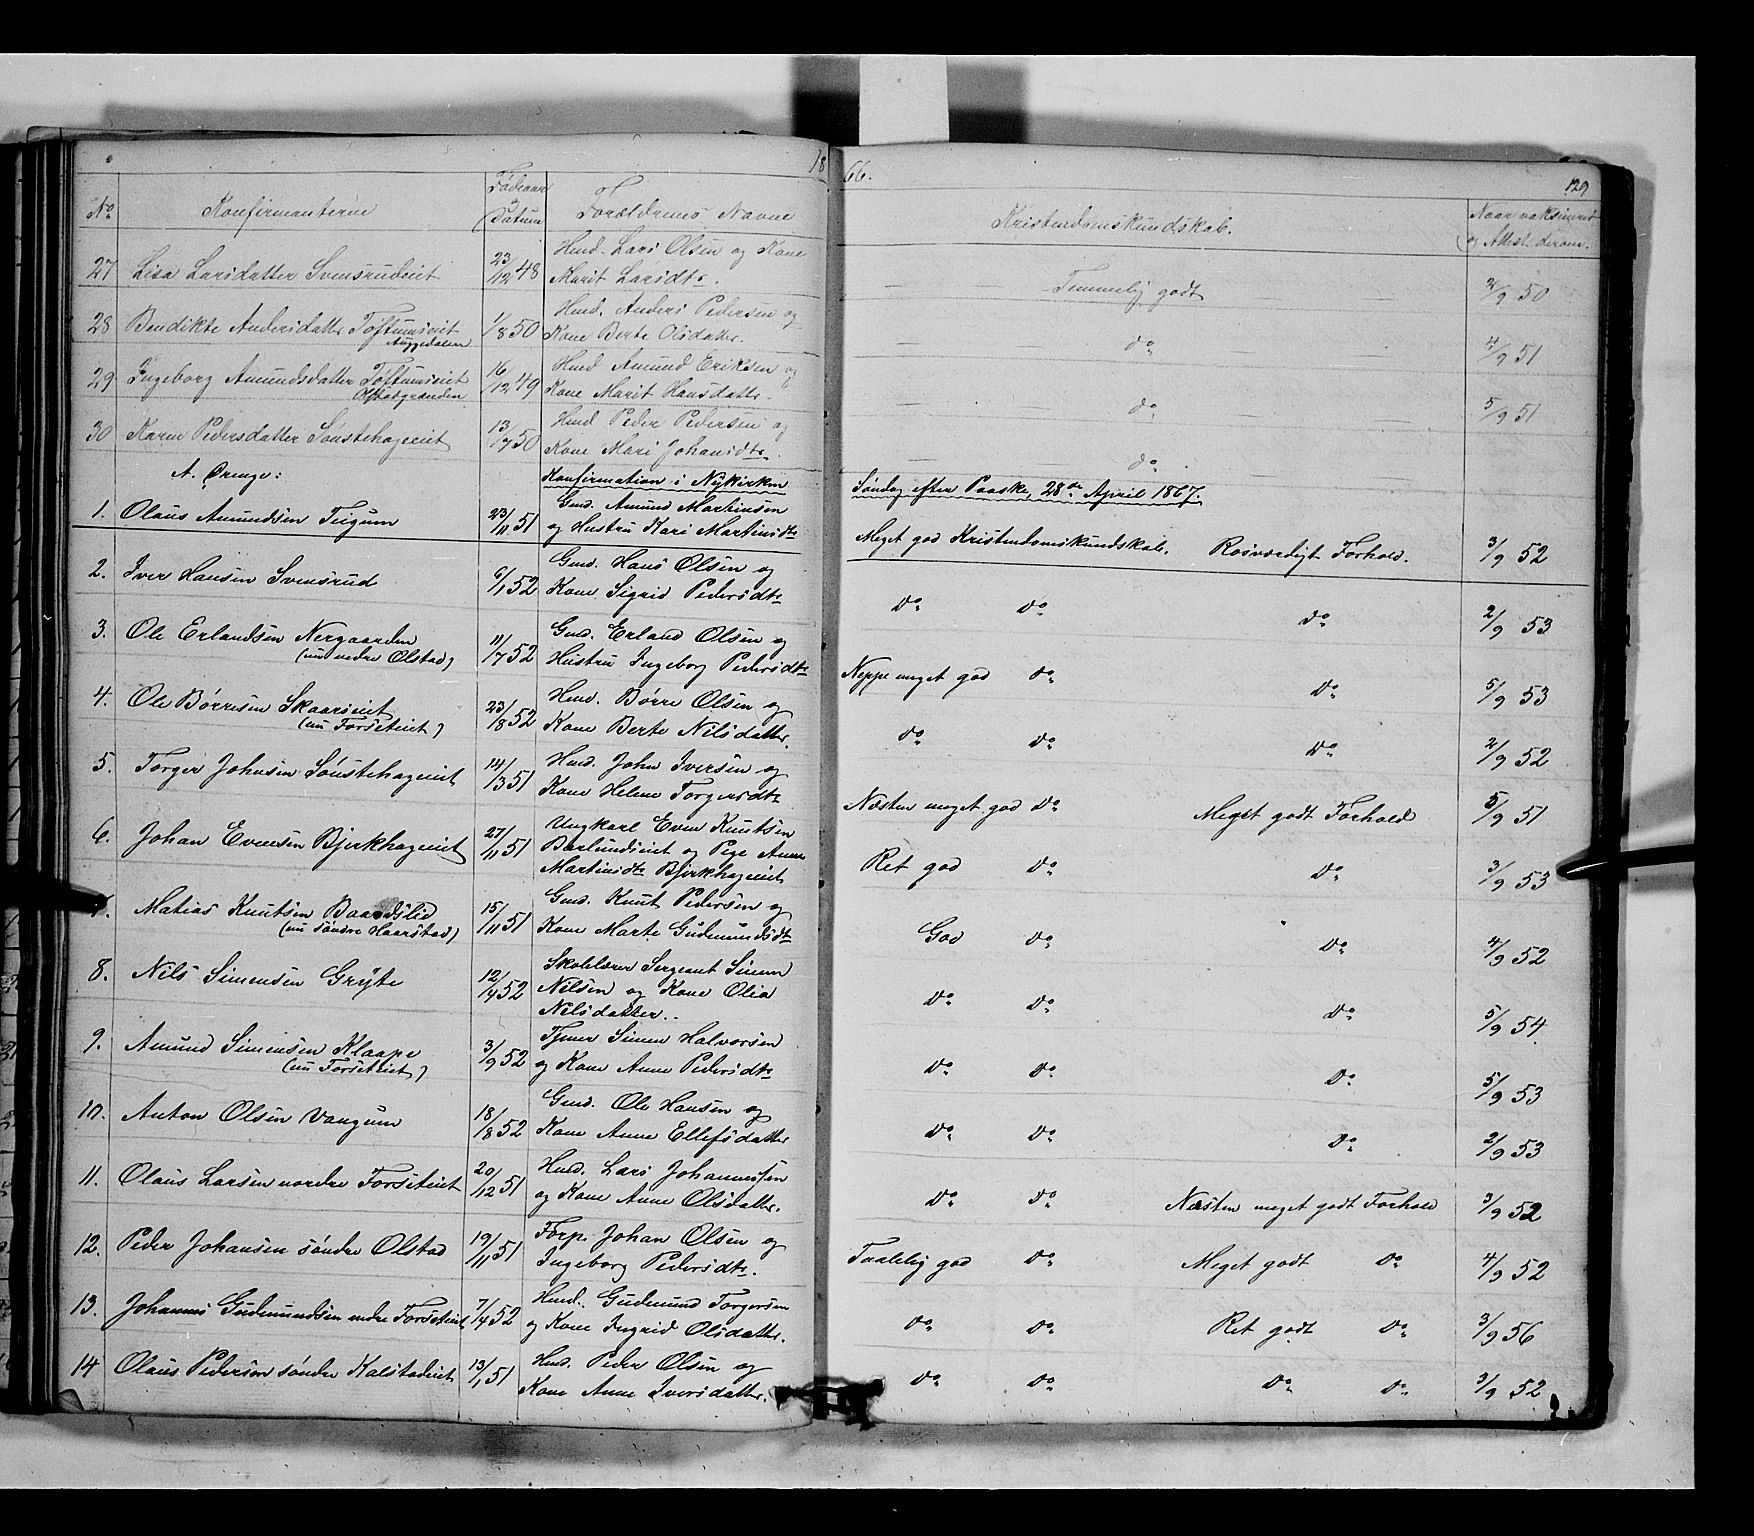 18
66.
129
No
Konfirmanterne
Fødeaar
Datum
Forældrenes Navne
Kristendomskundskab.
Naar vaksineret
og Attest derom.
27 Lisa Larsdatter Svensrudeiet 23/12 48 Hmd. Lars Olsen og Kone
Marit Larsdtr.
Temmelig godt 2/9 50
28 Bendikte Andersdattr Toftumseiet 1/8 50 Hmd. Anders Pedersen og
Kone Berte Olsdatter.
do 4/9 51
29 Ingeborg Amundsdatter Toftumseiet 16/12 49 Hmd Amund Eriksen og
Kone Marit Hansdattr.
do 5/9 51
30 Karen Pedersdatter Sønstehageeiet 13/7 50 Hmd Peder Pedersen og
Kone Mari Johansdtr.
do
A. Drenge:
Konfirmation i Nykirken
Søndag efter Paaske, 28de April 1867.
1. Olaus Amundsen Tugum 23/11 51 Gmd. Amund Martinsen
og Hustru Kari Martinsdtr
Meget god Kristendomskundskab. Rosværdigt Forhold. 3/9 52
2. Iver Hansen Svensrud 6/1 52 Gmd. Hans Olsen og
Kone Sigrid Pedersdtr
do do do 2/9 53
3. Ole Erlandsen Nergaarden 11/7 52 Gmd. Erland Olsen og
(nu nedre Olstad) Hustru Ingeborg Pedersdtr
Neppe meget god do do 5/9 53
4. Ole Børresen Skaarseiet 23/8 52 Hmd. Børre Olsen og
(nu Forseteiet) Kone Berte Nilsdatter.
do do do 2/9 52
5. Torger Johnsen Sønstehageeiet 14/3 51 Hmd. John Iversen og
Kone Helene Torgersdtr
Næsten meget god do Meget godt Forhold 5/9 51
6. Johan Evensen Bjerkhageeiet 27/11 51 Ungkarl Even Knutsen
Barlundseiet og Pige Anne
Martinsdtr Bjerkhageeiet
Ret god do do 3/9 53
7. Matias Knutsen Baardslid 15/11 51 Gmd. Knut Pedersen og
(nu søndre Haarstad) Kone Marte Gudmundsdtr
God do do 4/9 52
8. Nils Simensen Gryte 12/4 52 Skolelærer Sergeant Simen
Nilsen og Kone Olia
Nilsdatter.
do do do 5/9 54
9. Amund Simensen Klaape 3/9 52 Tjener Simen Halvorsen
(nu Forseteiet) og Kone Anne Pedersdtr
do do do 5/9 53
10. Anton Olsen Vangum 18/8 52 Gmd. Ole Hansen og
Kone Anne Ellefsdatter
do do do 2/9 53
11. Olaus Larsen nordre Forseteiet 20/12 51 Hmd. Lars Johannessen
og Kone Anne Olsdatter.
do do Næsten meget godt Forhold 3/9 52
12. Peder Johansen søndre Olstad 19/11 51 Forp. Johan Olsen og
Ingeborg Pedersdtr.
Taalelig god do Meget godt do 4/9 52
13. Johannes Gudmundsen nedre Forseteiet 7/4 52 Hmd. Gudmund Torgersen
og Kone Ingrid Olsdatter.
do do Ret godt do 3/9 56
14 Olaus Pedersen søndre Kalstadeiet 13/1 51 Hmd. Peder Olsen og
Kone Anne Iversdatter.
do do do do 3/9 52